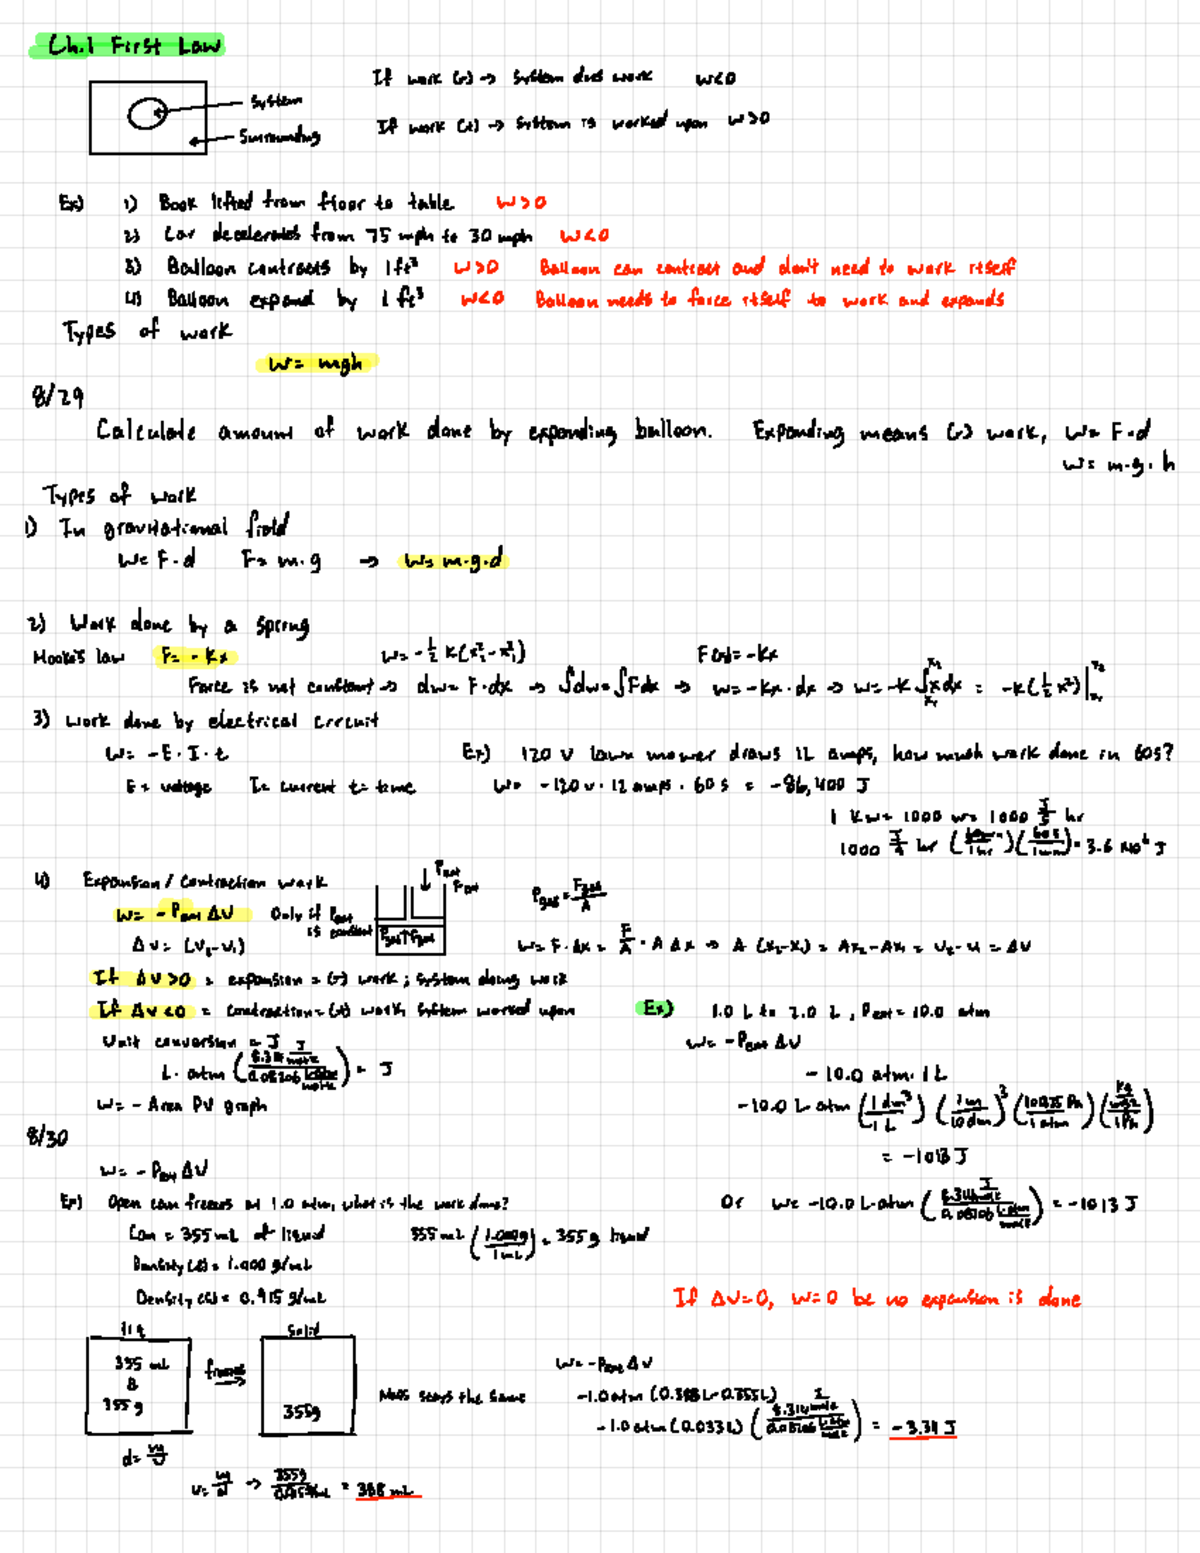 Ch.1 First Law
If work (-) → System does work W<0
System
Surrounding
If work (+) → System is worked upon W>0
Ex) 1) Book lifted from floor to table W>0
2) Car decelerates from 75 mph to 30 mph W<0
3) Balloon contracts by 1ft³ W>0 Balloon can contract and don't need to work itself
4) Balloon expand by 1 ft³ W<0 Balloon needs to force itself to work and expands
Types of work
W= mgh
8/29
Calculate amount of work done by expanding balloon. Expanding means (-) work, W= F·d
W= m·g·h
Types of work
1) In gravitational field
W= F·d F= m·g → W= m·g·d
2) Work done by a spring
Hooke's law F= -Kx W= -½ K(x₂²-x₁²) F(x)= -Kx
Force is not constant → dw= F·dx → ∫dw=∫Fdx → w= -Kx·dx → w= -K∫x dx = -K(½x²)|
3) Work done by electrical circuit
W= -E·I·t Ex) 120 V lawn mower draws 12 amps, how much work done in 60s?
E= voltage I= current t= time W= -120 v · 12 amps · 60 s = -86,400 J
1 Kw= 1000 w= 1000 J/s hr
1000 J/s hr (60min/1hr)(60s/1min)= 3.6 x10⁶ J
4) Expansion/Contraction work
Pext
Fext
Pgas= Fgas/A
W= -Pext ΔV Only if Pext is constant
Pgas↑Fgas
ΔV= (V₂-V₁) W= F·Δx = F/A · A Δx → A (x₂-x₁) = Ax₂-Ax₁ = V₂-V₁ = ΔV
If ΔV>0 = expansion = (-) work; system doing work
If ΔV<0 = contraction= (+) work, system worked upon
Ex) 1.0 L to 2.0 L, Pext= 10.0 atm
Unit conversion = J
W= -Pext ΔV
L·atm (8.314 J/mol K / 0.08206 L·atm/mol K) = J
- 10.0 atm· 1 L
W= - Area PV graph
-10.0 L·atm (1 dm³/1 L) (1m/10dm)³ (101325 Pa/1 atm) (kg/ms²/1Pa)
8/30
= -1013 J
W= - Pext ΔV
Ex) Open can freezes at 1.0 atm, what is the work done?
Or W= -10.0 L·atm (8.314 J/mol K / 0.08206 L·atm/mol K) = -1013 J
Can = 355 mL of liquid 355 mL (1.000g/1mL) = 355 g liquid
Density (l) = 1.000 g/mL
Density (s) = 0.915 g/mL
If ΔV=0, W=0 bc no expansion is done
liq
solid
355 mL
&
355 g
freezes
355g
Mass stays the same
W= -Pext ΔV
-1.0 atm (0.388 L-0.355L)
-1.0 atm (0.033L) (8.314 J/mol K / 0.08206 L·atm/mol K) = -3.34 J
d= m/V
V= m/d → 355g/0.915 g/mL = 388 mL